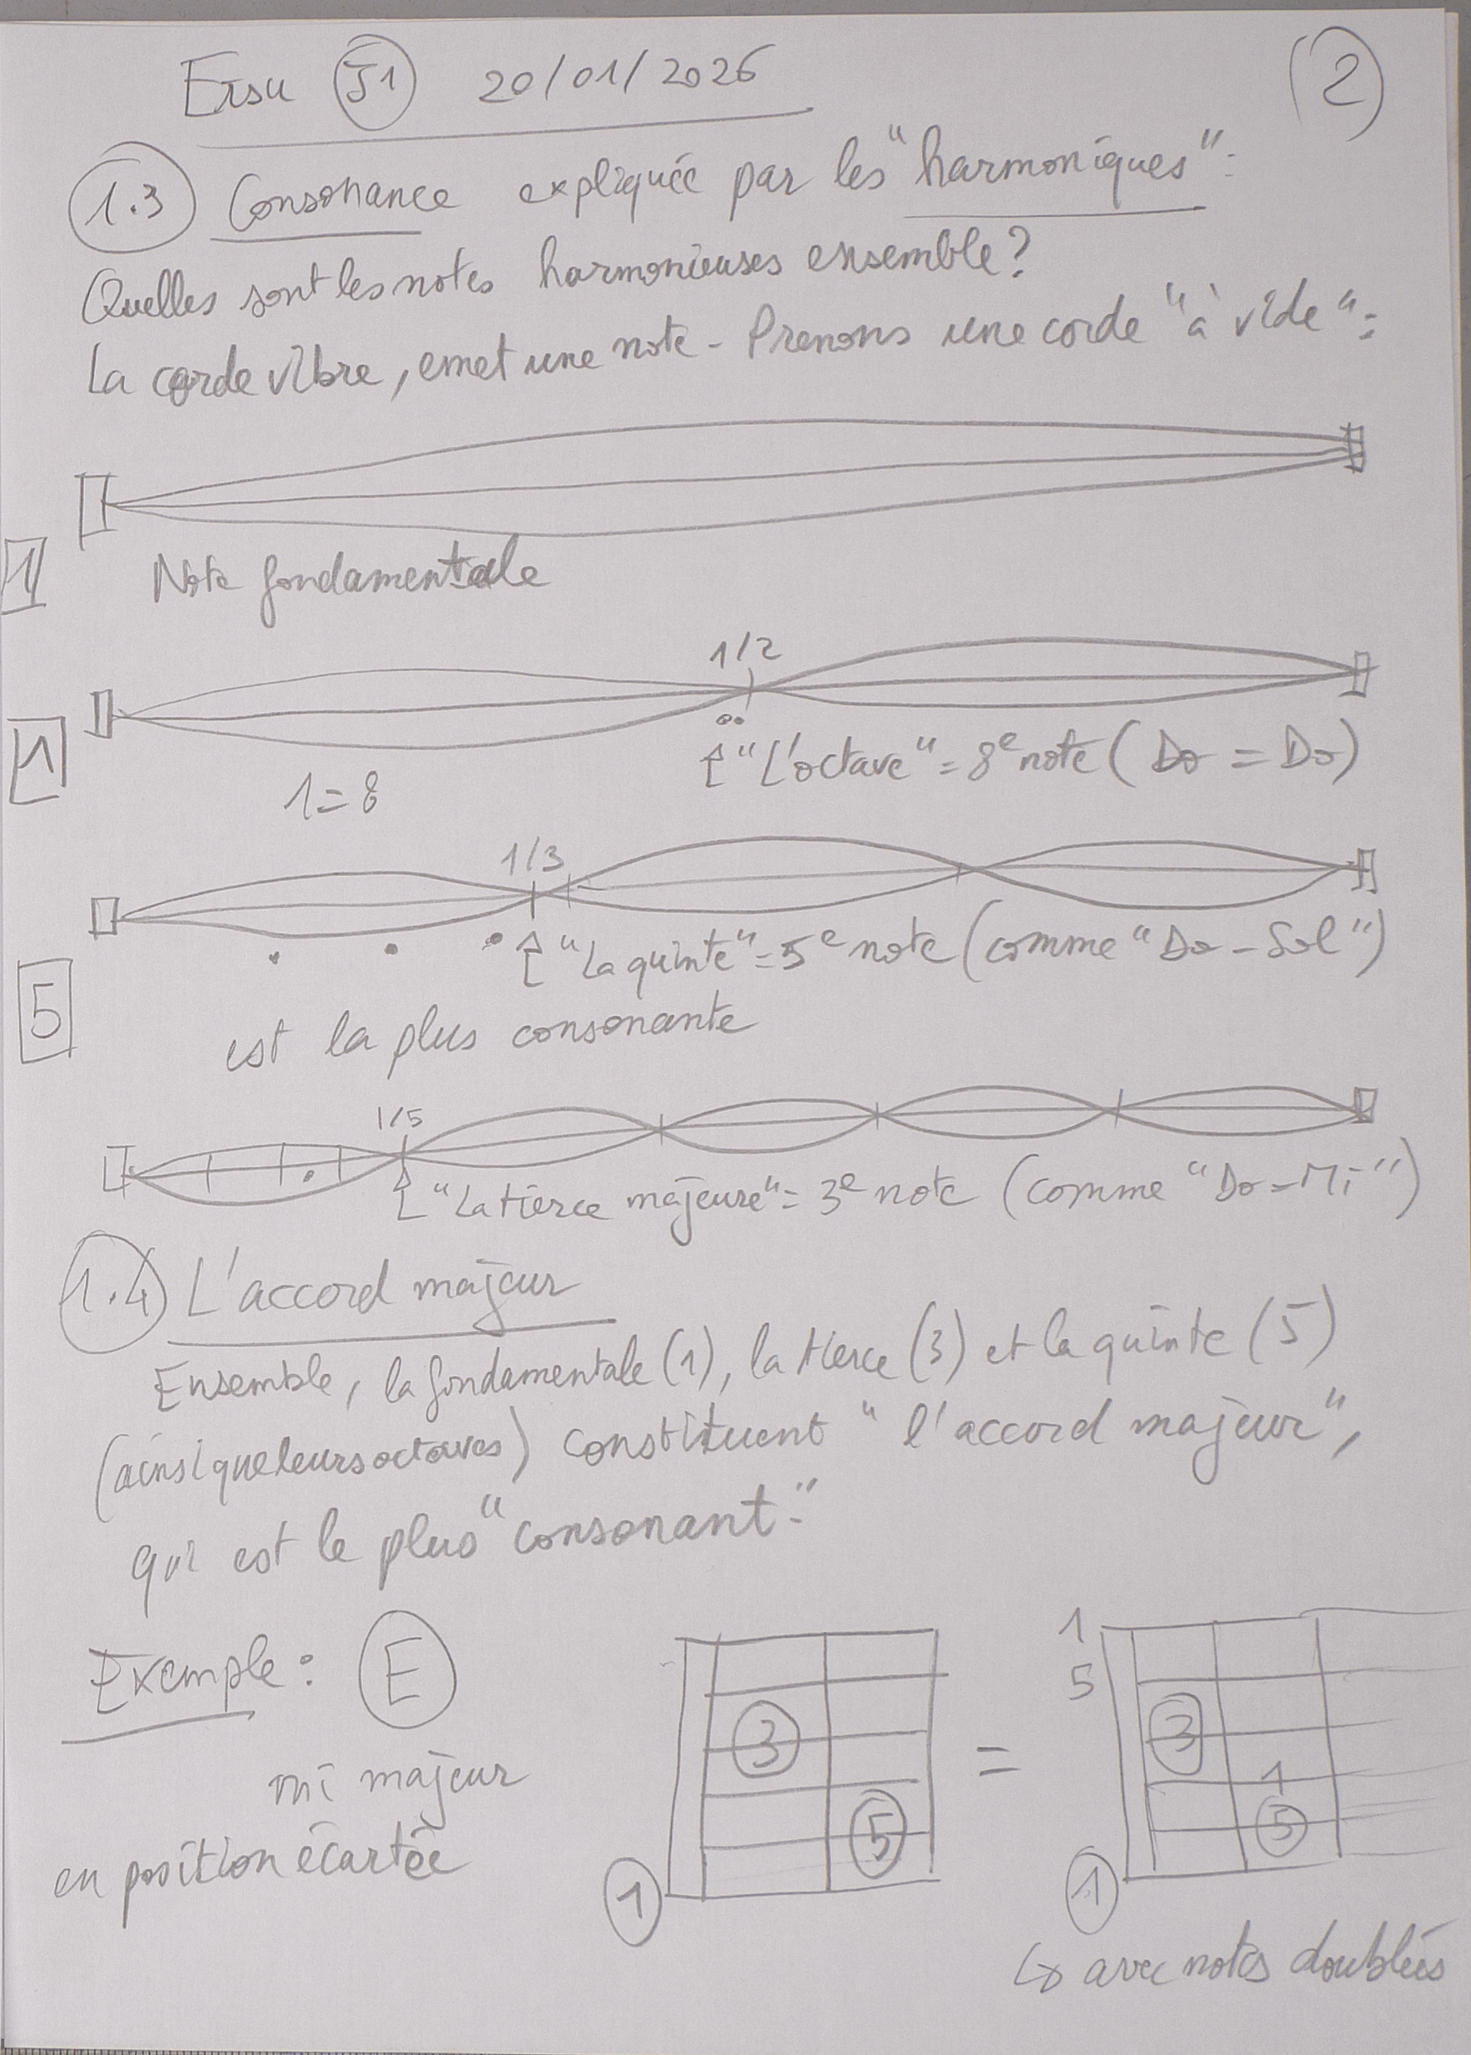 Ersu J1 20/01/2026 (2)
1.3 Consonance expliquée par les "harmoniques":
Quelles sont les notes harmonieuses ensemble?
La corde vibre, emet une note - Prenons une corde "à vide":
1 Note fondamentale
1/2
1 "L'octave" = 8e note (Do = Do)
1=8
1/3
"La quinte" = 5e note (comme "Do - Sol")
5 est la plus consonante
1/5
"La tierce majeure" = 3e note (comme "Do - Mi")
1.4 L'accord majeur
Ensemble, la fondamentale (1), la tierce (3) et la quinte (5)
(ainsi que leurs octaves) constituent "l'accord majeur",
qui est le plus "consonant."
Exemple: E
mi majeur
en position écartée
3
5
1
=
1
5
3
1
5
1
↳ avec notes doublées